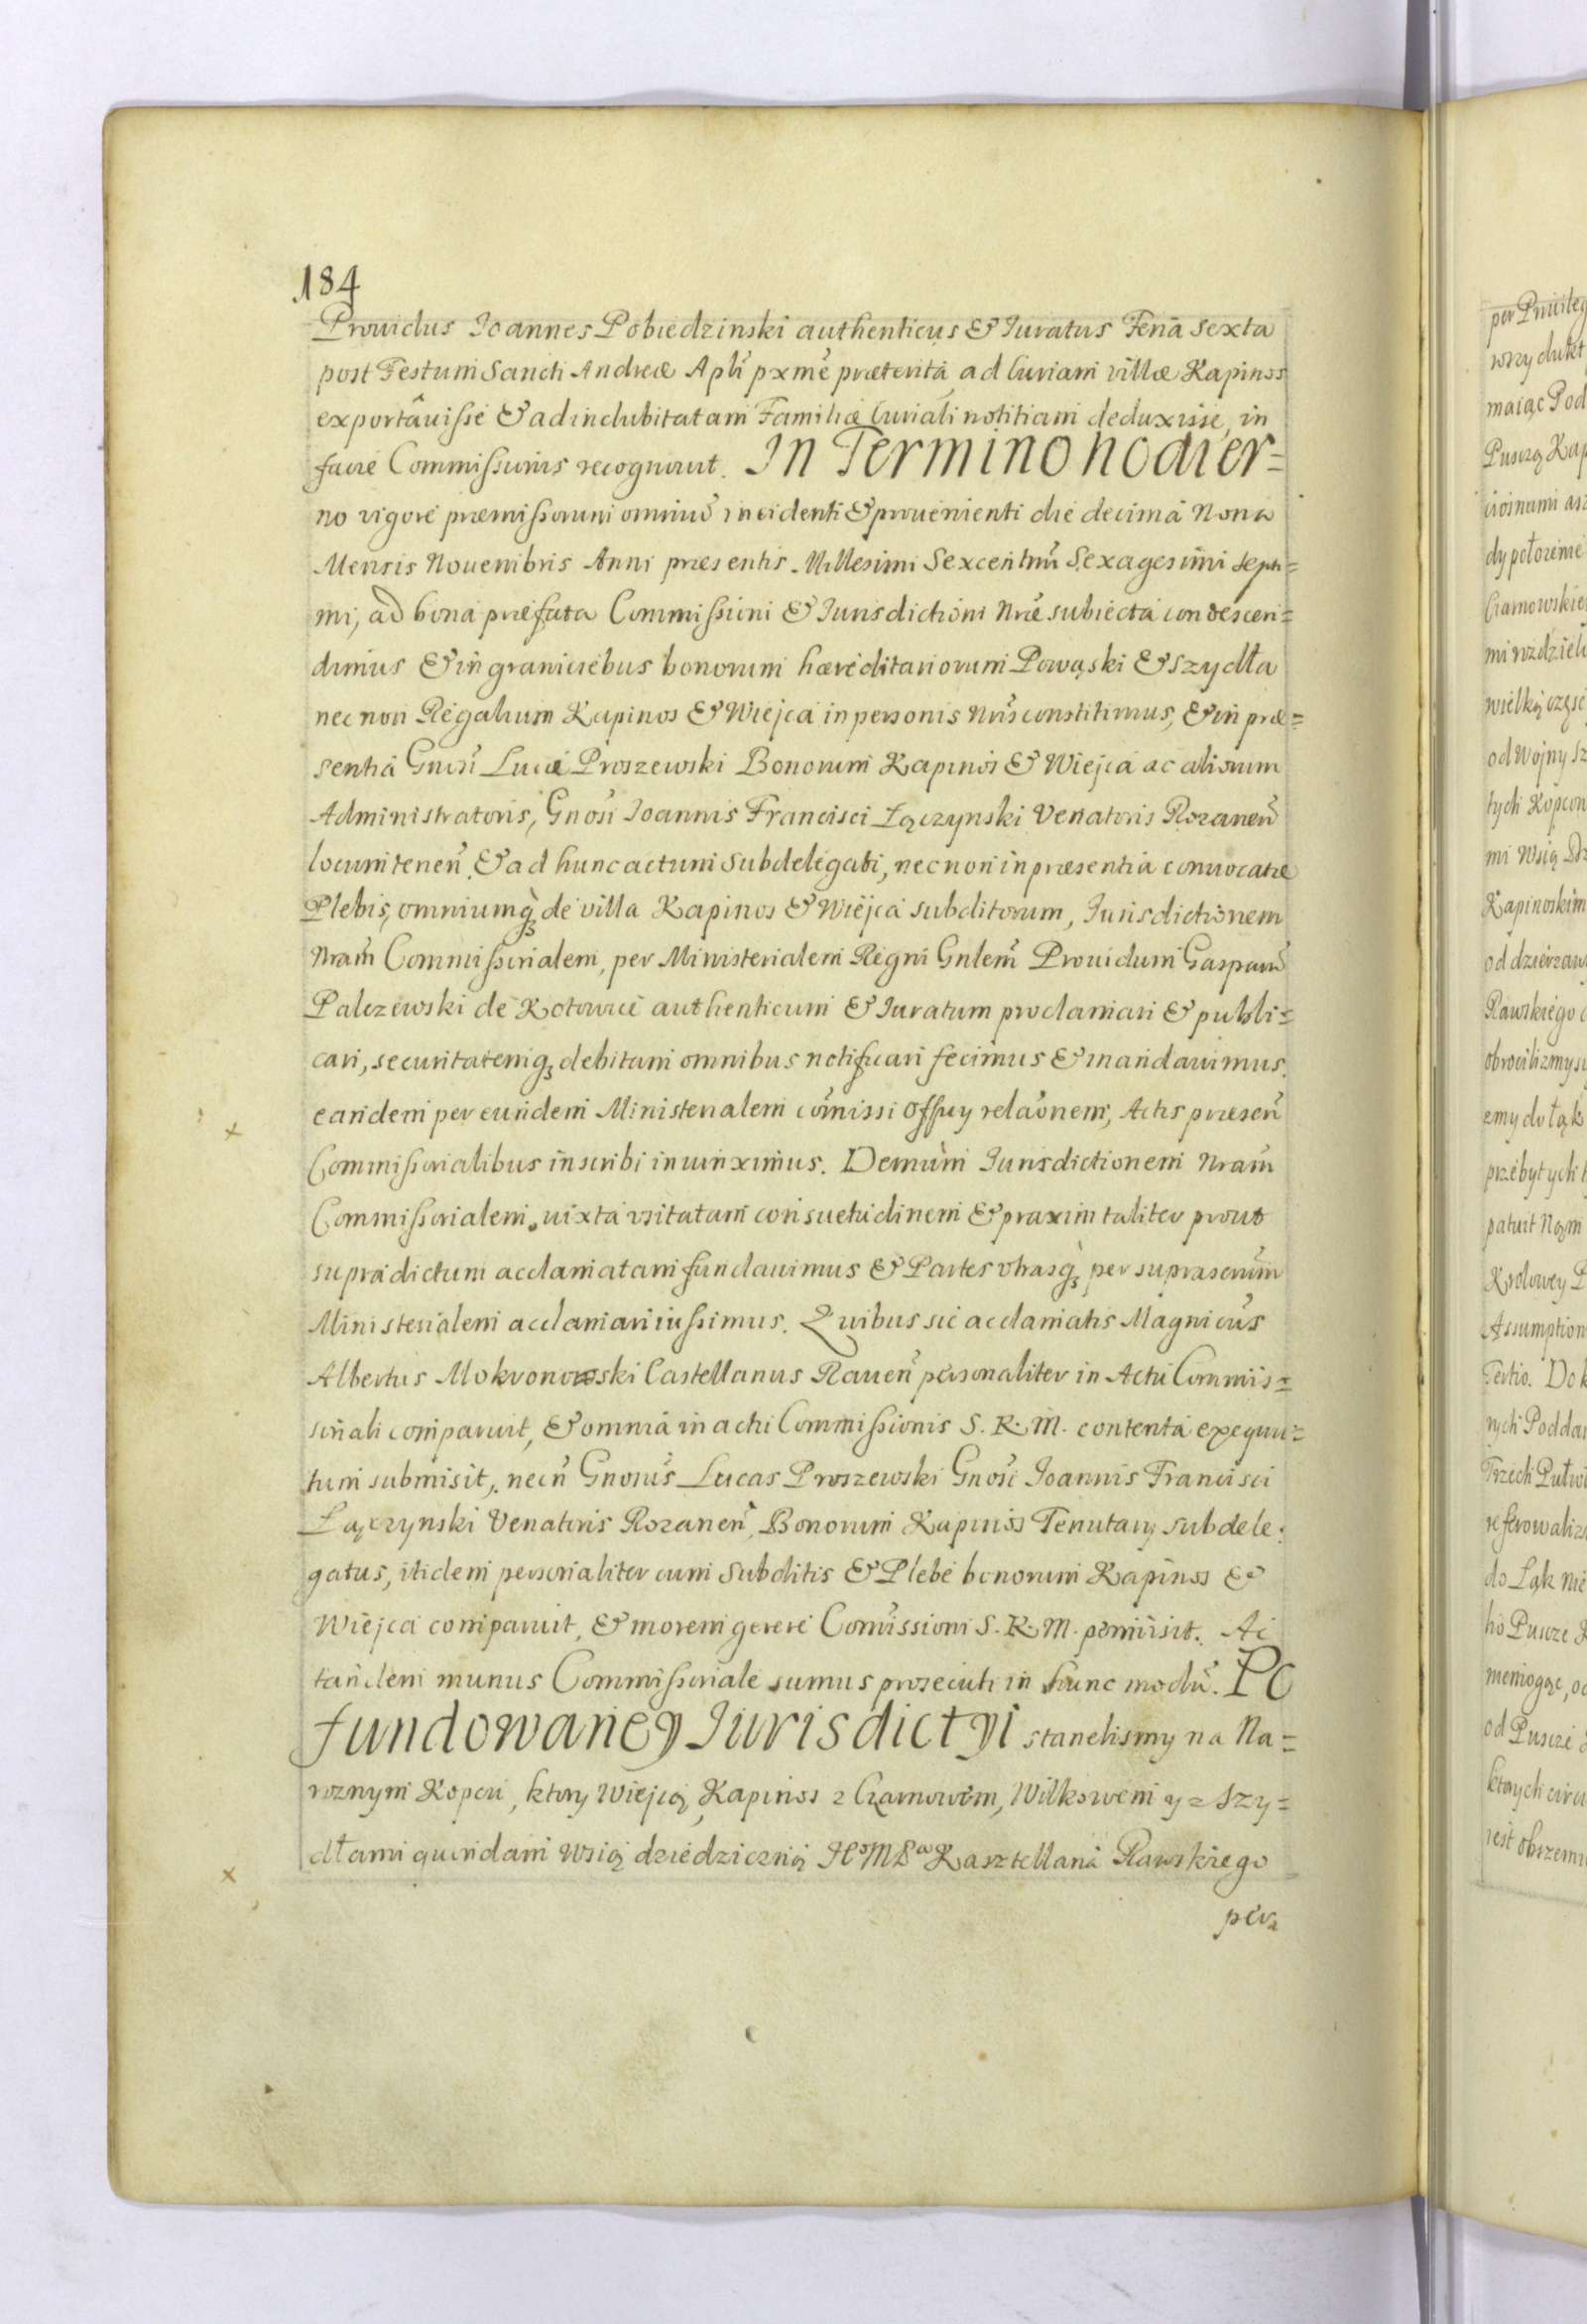 184
Prouidus Ioannes Pobiedzinski authenticus & Iuratus Feria sexta
post Festum Sancti Andreæ Apli pxme præterita, ad Curiam villæ Kapinos
exportâuisse & ad indubitatam Familiæ Curiali notitiam deduxisse, in
facie Commissionis recognouit. In Termino hodier=
no vigore præmissorum omniũ incidenti & prouenienti die decima Nona
Mensis Nouembris Anni præsentis Millesimi Sexcentmi Sexagesimi septi=
mi, ad bona præfata Commissioni & Iurisdictioni Nræ subiecta condescen=
dimus & in graniciebus bonorum hæreditariorum Powąski & Szydła
nec non Regalium Kapinos & Wiejca in personis Nris constitimus, & in præ=
sentia Gnosi Lucæ Proszewski Bonorum Kapinos & Wiejca ac aliorum
Administratoris, Gnosi Ioannis Francisci Łączynski Venatoris Rozaneñ
locumteneñ & ad hunc actum subdelegati, nec non in præsentia conuocatæ
Plebis, omniumq; de villa Kapinos & Wiejca subditorum, Iurisdictionem
Nram Commissorialem, per Ministerialem Regni Gnlem Prouidum Gasparũ
Palczewski de Kotowice authenticum & Iuratum proclamari & publi=
cari, securitatemq; debitam omnibus notificari fecimus & mandauimus.
eandem per eundem Ministerialem comissi Offcy relaõnem, Actis præseñ
Commissorialibus inscribi iniunximus. Demum Iurisdictionem Nram
Commissorialem iuxta vsitatam consuetudinem & praxim taliter prout
supra dictum acclamatam fundauimus & Partes vtrasq; per suprascrum
Ministerialem acclamari iussimus. Quibus sic acclamatis Magnicus
Albertus Mokronoski Castellanus Raueñ personaliter in Actu Commis=
soriali comparuit, & omnia in actu Commissionis S. R. M. contenta exequu=
tum submisit, necñ Gnosus Lucas Proszewski Gnosi Ioannis Francisci
Łączynski Venatoris Rozaneñ, Bonorum Kapinos Tenutary subdele=
gatus, itidem personaliter cum subditis & Plebe bonorum Kapinos &
Wiejca comparuit, & morem gerere Comissioni S. R. M. pomisit. Ac
tandem munus Commissoriale sumus prosecuti in hunc modũ. Po
fundowaney Iurisdictyi stanelismy na Na=
roznym Kopcu, ktory Wiejcą, Kapinos z Czarnowem, Wilkowem y z Szy=
dłami quondam wsią dziedziczną IeoMPa Kasztellana Rawskiego
per
per Priuileg
maiąc Pod
Puszcą Kap
dy położenie
Czarnowskie
mi rozdzieli
od Wojny Sz
tych Kopcow
Kapinoskim
Rawskiego
emy do łąk
przebytych
Krolowey P
Assumption
Tertio. Dok
nych Poddan
do Łąk
ho Puszcze
od Puszcze